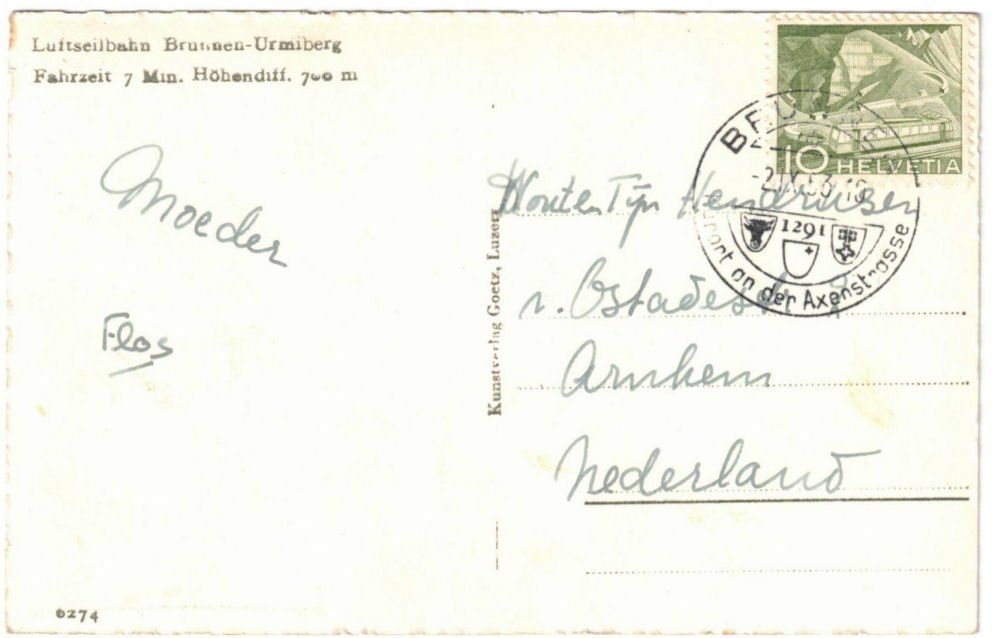 Luftseilbahn Brunnen-Urmiberg
Fahrzeit 7 Min. Höhendiff. 700 m
Moeder
Flos
6274
Kunstverlag Goetz, Luzern
10 HELVETIA
BRUNNEN
-2.IX.53.-18
1291
an der Axenstrasse
Wouter
v. Ostadestr
Arnhem
Nederland